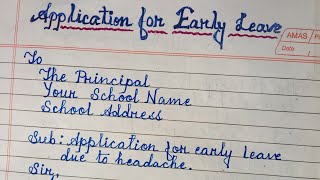 Application for Early Leave
AMAS
Date
To
The Principal
Your School Name
School Address
Sub: Application for early leave
due to headache.
Sir,